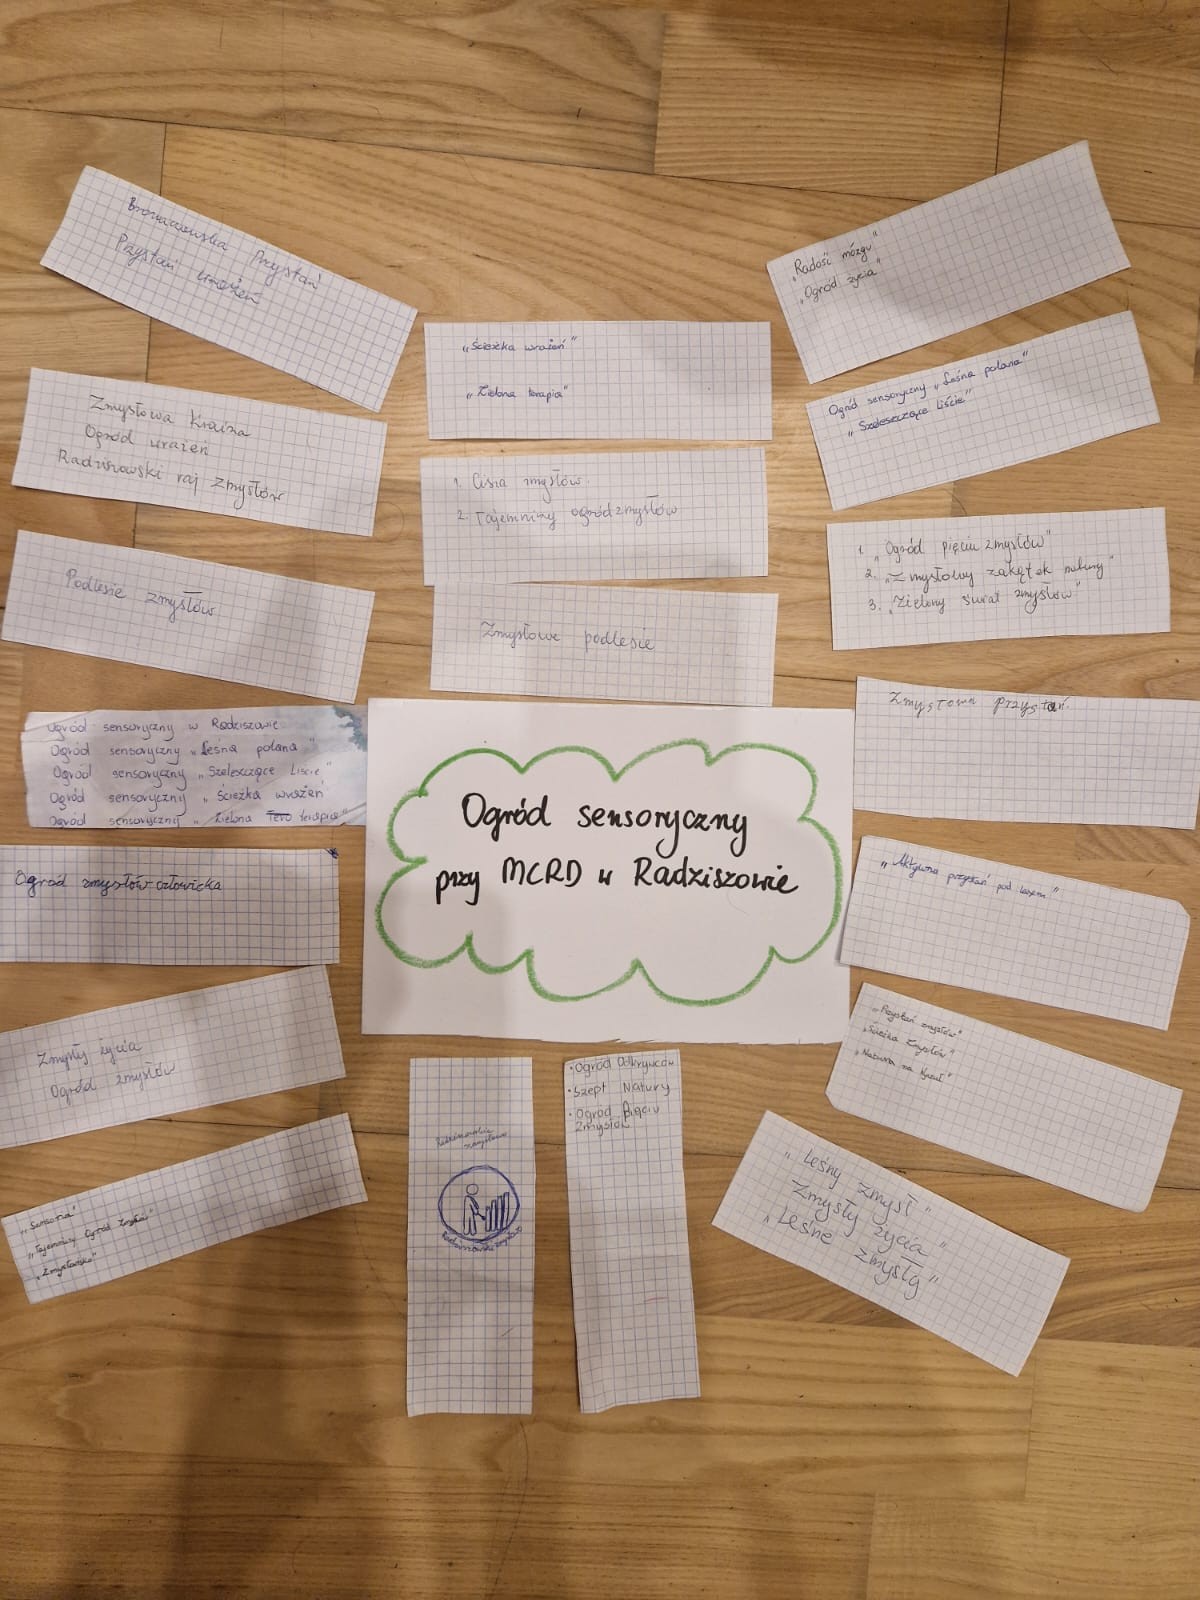 Przystań
Przystań wrażeń
Zmysłowa Kraina
Ogród wrażeń
Radziszowski raj zmysłów
Podlesie zmysłów
Ogród sensoryczny w Radziszowie
Ogród sensoryczny „Leśna polana"
Ogród sensoryczny „Szeleszczące Liście"
Ogród sensoryczny „Ścieżka wrażeń"
Ogród sensoryczny „Zielona terapia"
Ogród zmysłów człowieka
Zmysły życia
Ogród zmysłów
„Sensoria"
„Tajemniczy Ogród
„Ścieżka wrażeń"
„Zielona terapia"
1. Cisza zmysłów.
2. Tajemniczy ogród zmysłów
Zmysłowe podlesie
Ogród sensoryczny
przy MCRD w Radziszowie
Radziszowskie
• Ogród Odkrywców
• Szept Natury
• Ogród Pięciu
Zmysłów
„Radość mózgu"
„Ogród życia"
Ogród sensoryczny „Leśna polana"
„Szeleszczące Liście"
1. „Ogród pięciu zmysłów"
2. „Zmysłowy zakątek natury"
3. „Zielony świat zmysłów"
Zmysłowa przystań.
„Aktywna przystań pod lasem"
„Przystań zmysłów"
„Ścieżka Zmysłów"
„Natura na
„Leśny zmysł"
Zmysły życia"
„Leśne zmysły"